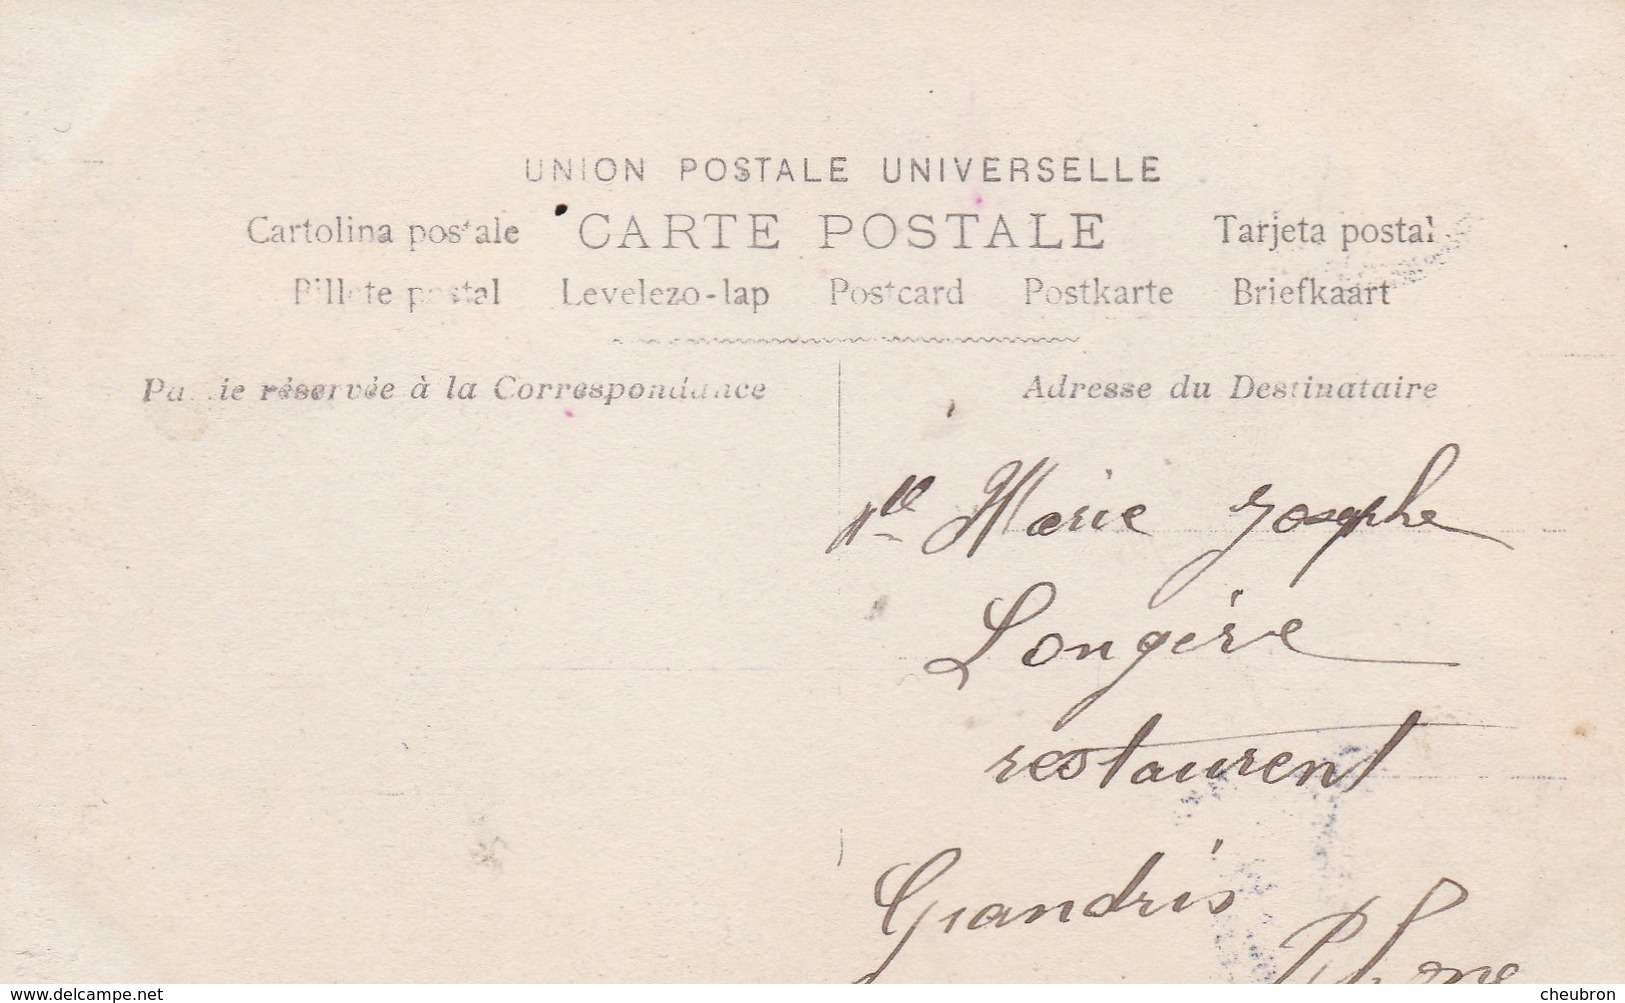 UNION POSTALE UNIVERSELLE
Cartolina postale CARTE POSTALE Tarjeta postal
Billete postal Levelezo-lap Postcard Postkarte Briefkaart
Partie réservée à la Correspondance
Adresse du Destinataire
Mlle Marie Josephe
Longère
restaurent
Grandris
Rhone
delcampe.net
cheubron